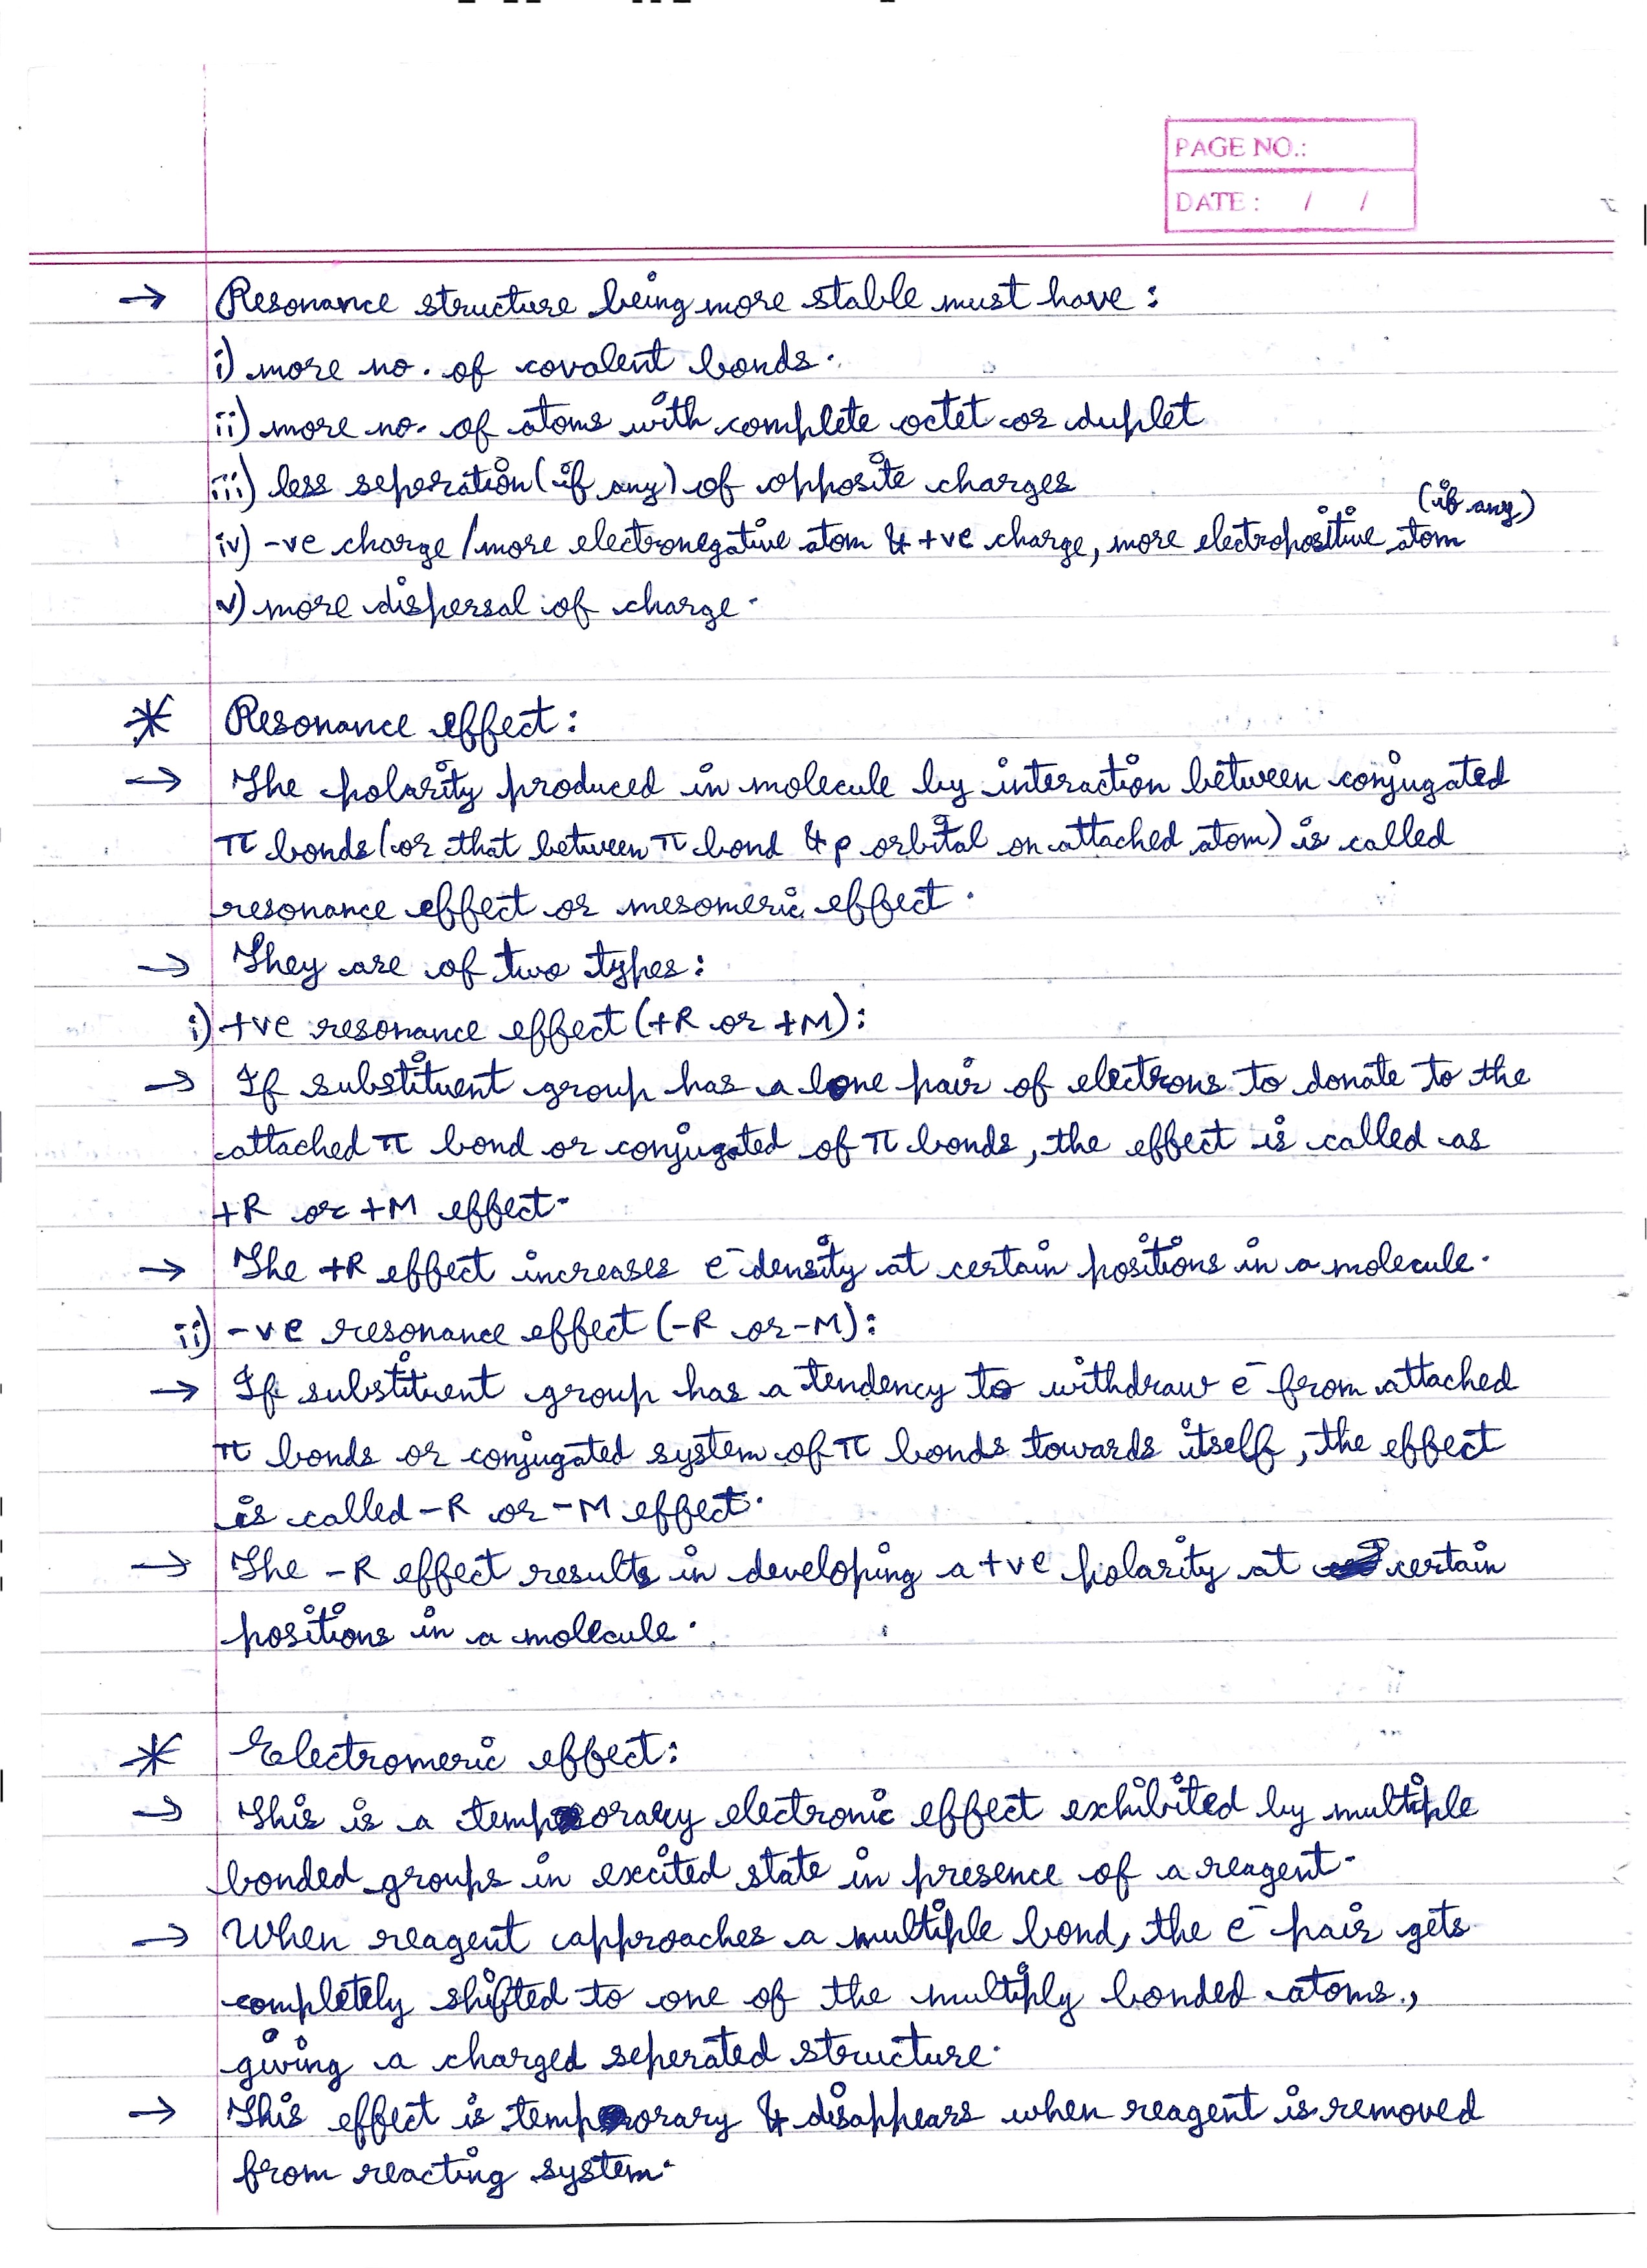 PAGE NO.:
DATE : / /
→ Resonance structure being more stable must have :
i) more no. of covalent bonds.
ii) more no. of atoms with complete octet or duplet
iii) less seperation (if any) of opposite charges
(if any)
iv) -ve charge / more electronegative atom & +ve charge, more electropositive atom
v) more dispersal of charge.
* Resonance effect :
→ The polarity produced in molecule by interaction between conjugated
π bonds (or that between π bond & p orbital on attached atom) is called
resonance effect or mesomeric effect.
→ They are of two types :
i) +ve resonance effect (+R or +M) :
→ If substituent group has a lone pair of electrons to donate to the
attached π bond or conjugated of π bonds, the effect is called as
+R or +M effect.
→ The +R effect increases e⁻ density at certain positions in a molecule.
ii) -ve resonance effect (-R or -M) :
→ If substituent group has a tendency to withdraw e⁻ from attached
π bonds or conjugated system of π bonds towards itself, the effect
is called -R or -M effect.
→ The -R effect results in developing a +ve polarity at certain
positions in a molecule.
* Electromeric effect :
→ This is a temporary electronic effect exhibited by multiple
bonded groups in excited state in presence of a reagent.
→ When reagent approaches a multiple bond, the e⁻ pair gets
completely shifted to one of the multiply bonded atoms,
giving a charged seperated structure.
→ This effect is temporary & disappears when reagent is removed
from reacting system.